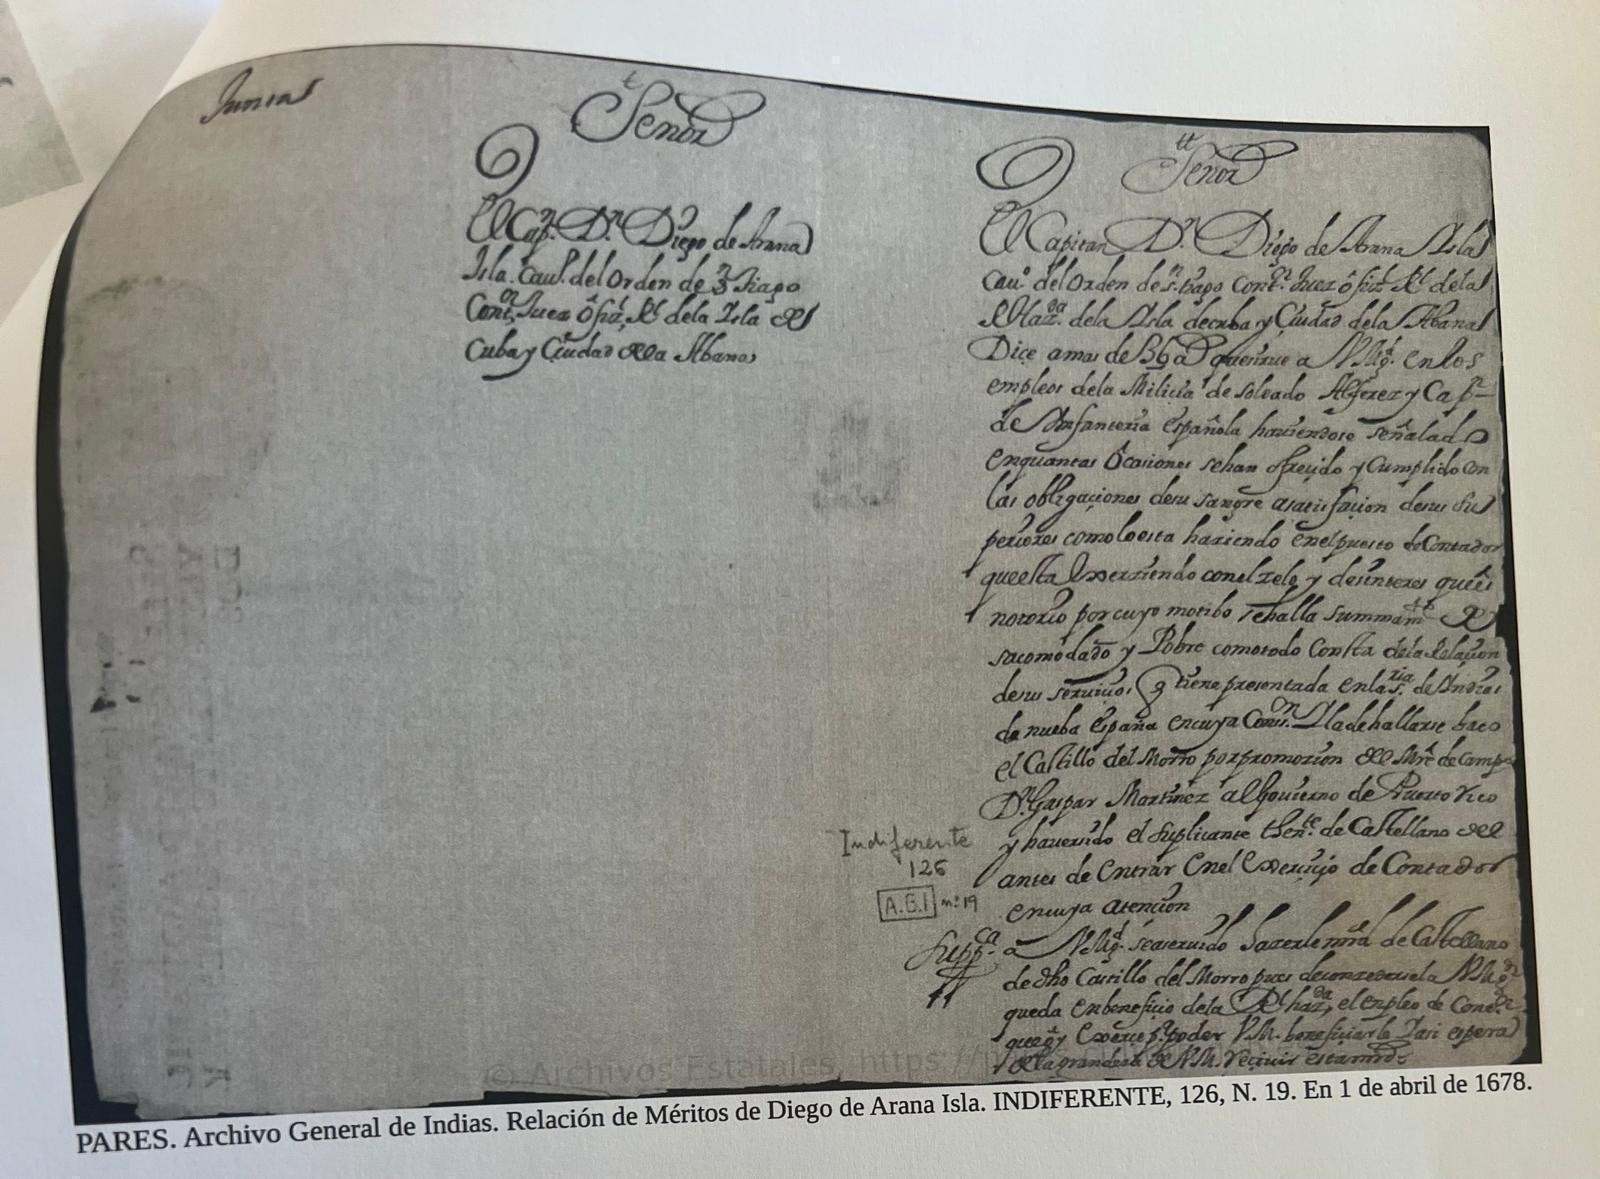 Juntas
Señor
El Capn. Dn. Diego de Arana
Isla. Caulo. del orden de Stiago
Contor. Juez ofizl. Rl. dela Isla de
Cuba y Ciudad de la Abana
Señor
El Capitan Dn. Diego de Arana Isla
cauo. del orden de Sntiago contor. Juez ofizl. Rl. de la
Rl Hazda. dela Isla decuba y Ciudad dela Abana
Dice amas de 36 as que sirue a V. Mgd. en los
empleos dela Milicia de soldado Alferez y Capn
de Infanteria española hauiendose señalado
enquantas ôcasiones sehan ofrecido y Cumplido con
las obligaçiones desu sangre asatisfacion desus su
periores comoloesta haziendo enelpuesto de Contador
queesta Exerziendo conelzelo y desinteres que es
notorio por cuyo motibo sehalla summamte. de
sacomodado y Pobre comotodo Consta dela Relaçion
desus seruiçios, q tiene presentada enla sria. de Indias
de nueba españa encuya Conson. Ila dehallarse baco
el Castillo del Morro porpromozion del Mre. de Campo
Dn. Gaspar Martinez al Gouierno de Puerto Rico
y hauersido el suplicante thente. de Castellano del
antes de Entrar Enel Exerçiçio de Contador
encuya atencion
Suppca. a V. Mgd. seaseruido hazerle mrd de Castellano
de dho Castillo del Morro pues deconzedersela V. Mgd.
queda enbeneficio dela Rl hazda, el enpleo de Contor.
que oy Exerçe pa. poder V.M. beneficiarlo Iasi espera
dela grandeza de V.M. Reçiuir esta mrd.
Indiferente
126
A.G.I nº 19
© Archivos Estatales, https://
PARES. Archivo General de Indias. Relación de Méritos de Diego de Arana Isla. INDIFERENTE, 126, N. 19. En 1 de abril de 1678.